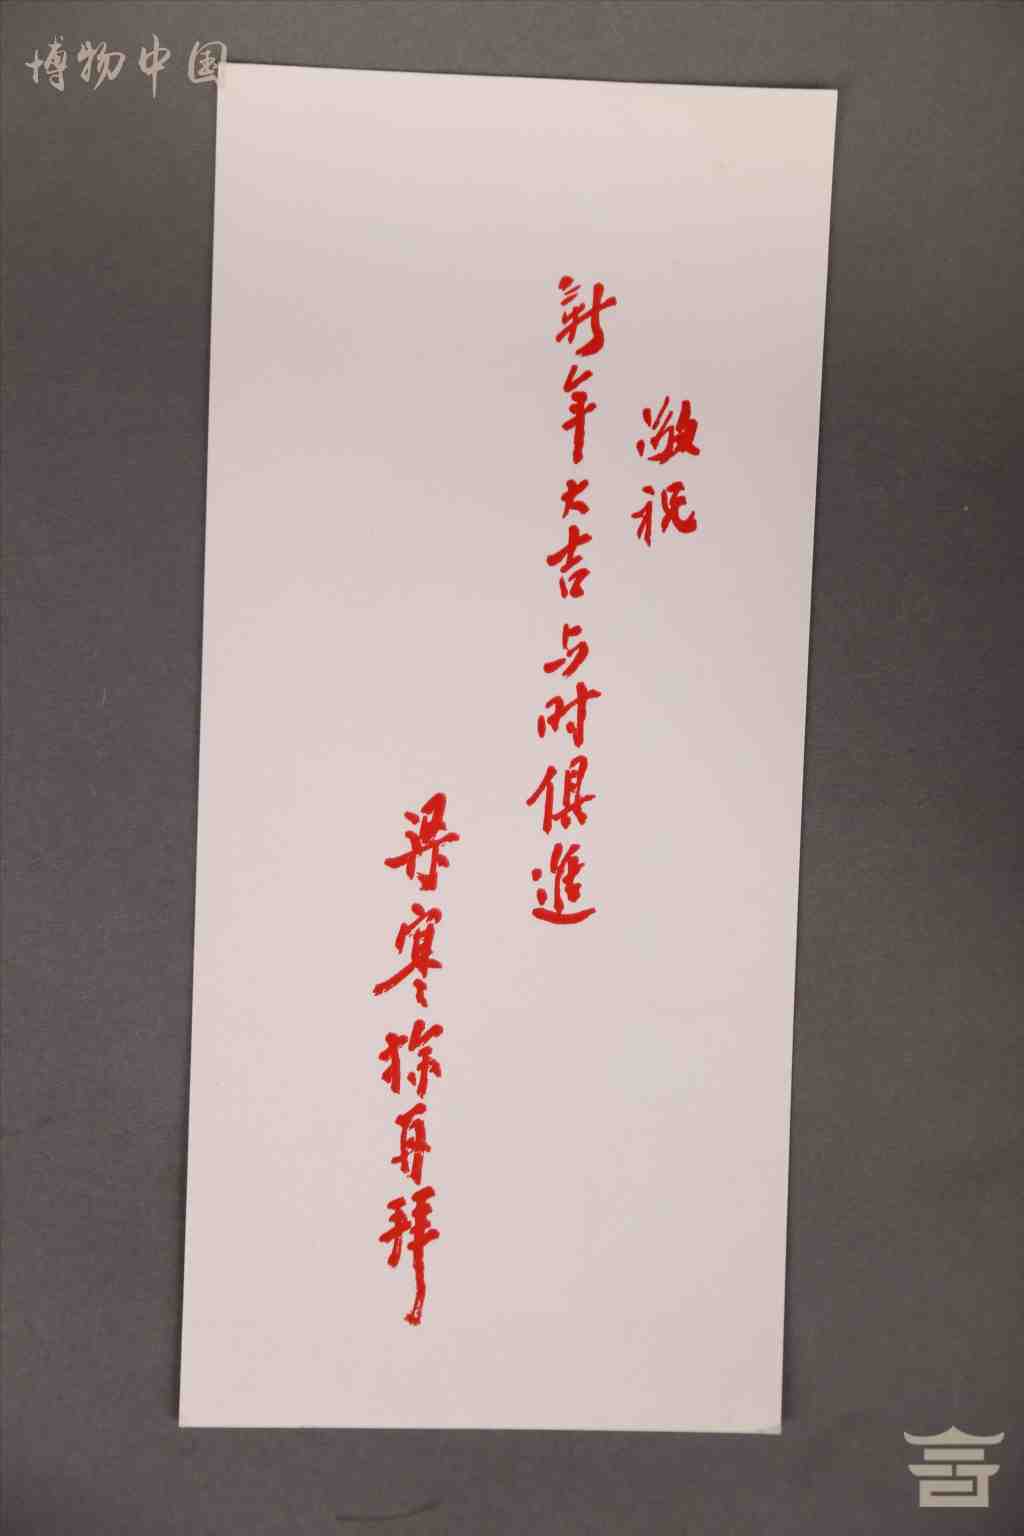 博物中国
敬祝
新年大吉与时俱進
梁寒操再拜